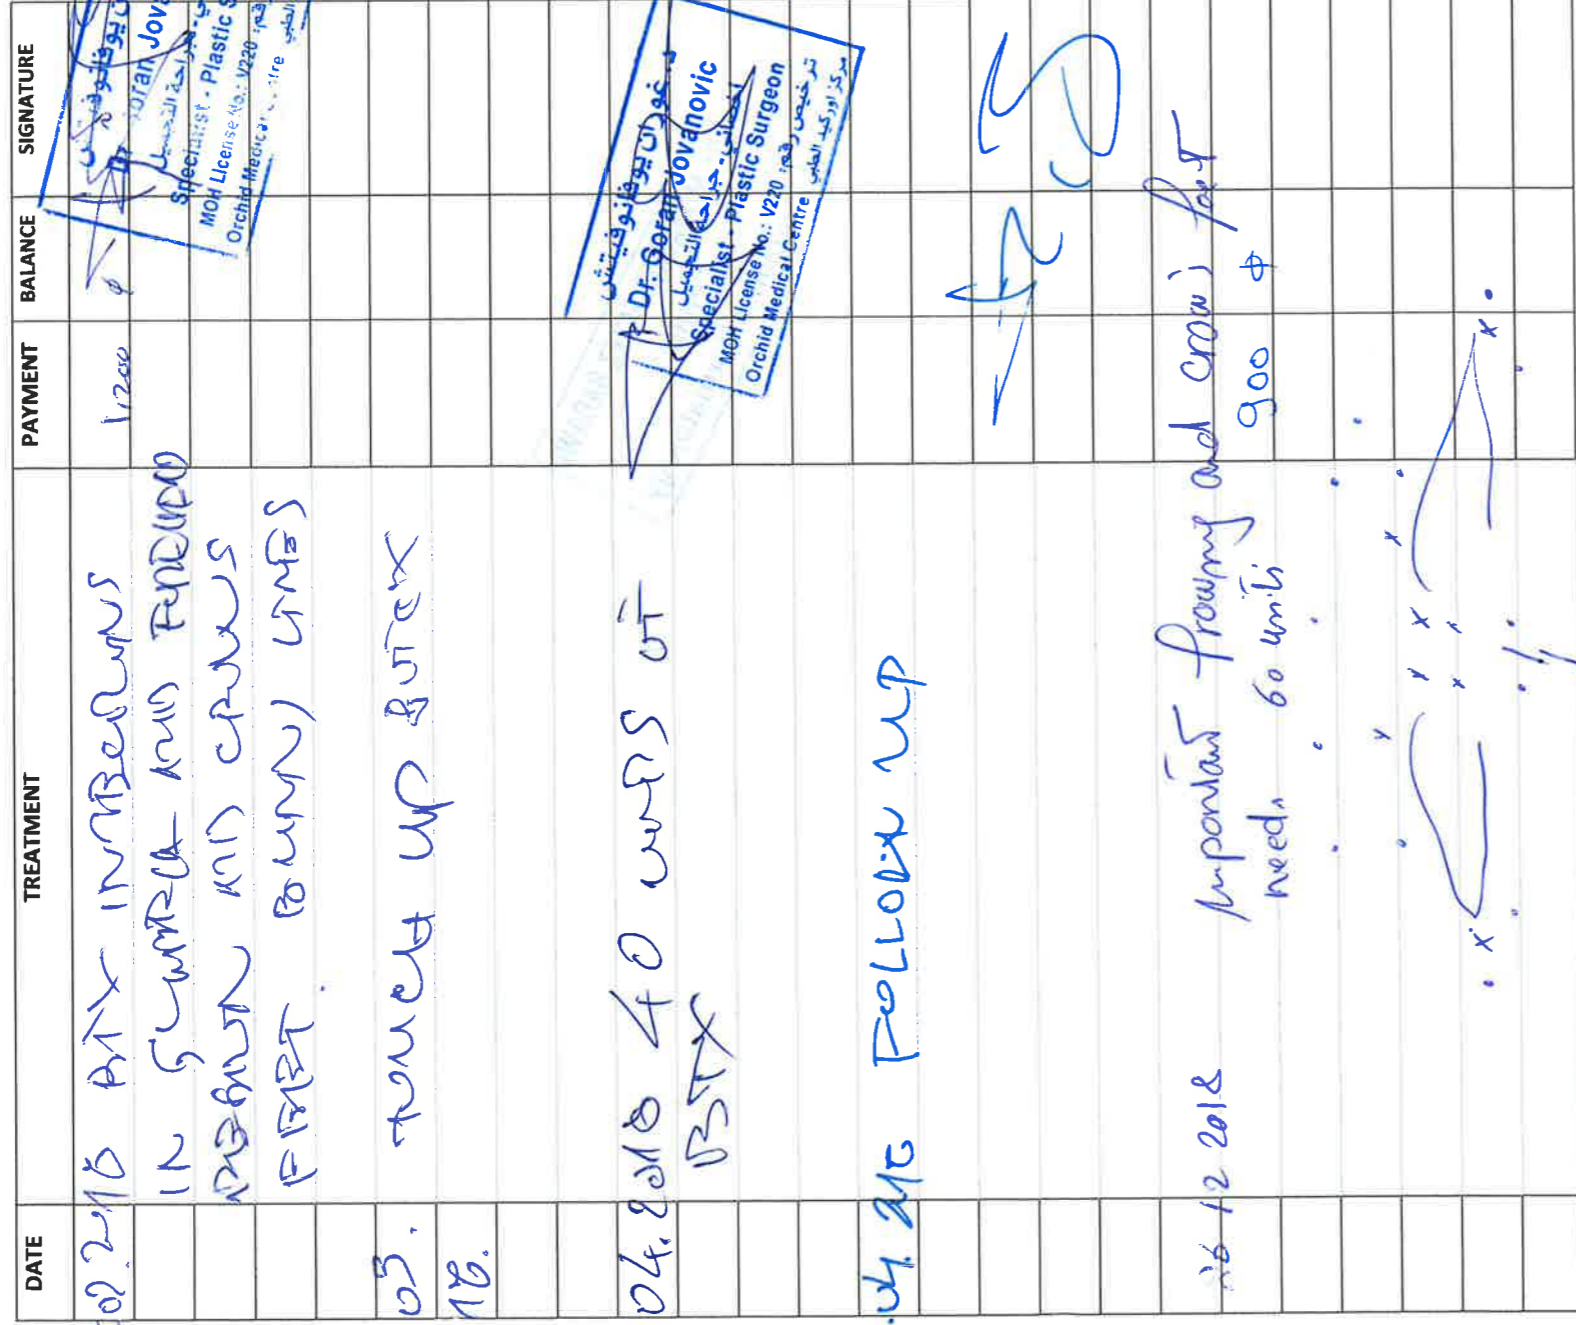 DATE TREATMENT PAYMENT BALANCE SIGNATURE
02.2018 BTX IN
IN GLABELLA AND FOREHEAD
REGION AND CROWS
FEET LINES
1,200 ϕ
د. غوران يوفانوفيتش
Specialist - Plastic
MOH License No.: V220
Orchid Medical Centre
03. TOUCH UP BOTOX
18.
04.2018 40 UNITS OF
BTX
د. غوران يوفانوفيتش
Dr. Goran Jovanovic
أخصائي - جراحة التجميل
Specialist - Plastic Surgeon
MOH License No.: V220 ترخيص رقم:
Orchid Medical Centre مركز اوركيد الطبي
04. FOLLOW UP
12 2018 important frowny and crow's feet
need. 60 units 900 ϕ